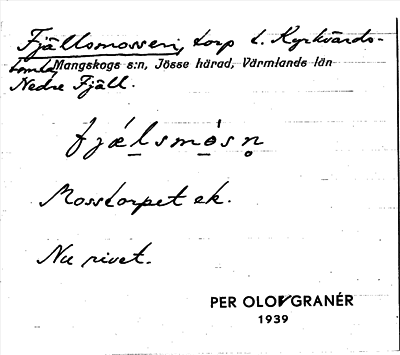 Fjällsmossen, torp t. Kyrkvärds-
tomta,
Mangskogs s:n, Jösse härad, Värmlands län
Nedre Fjäll.
fjælsmosn̥
Mosstorpet ek.
Nu rivet.
PER OLOV GRANÉR
1939